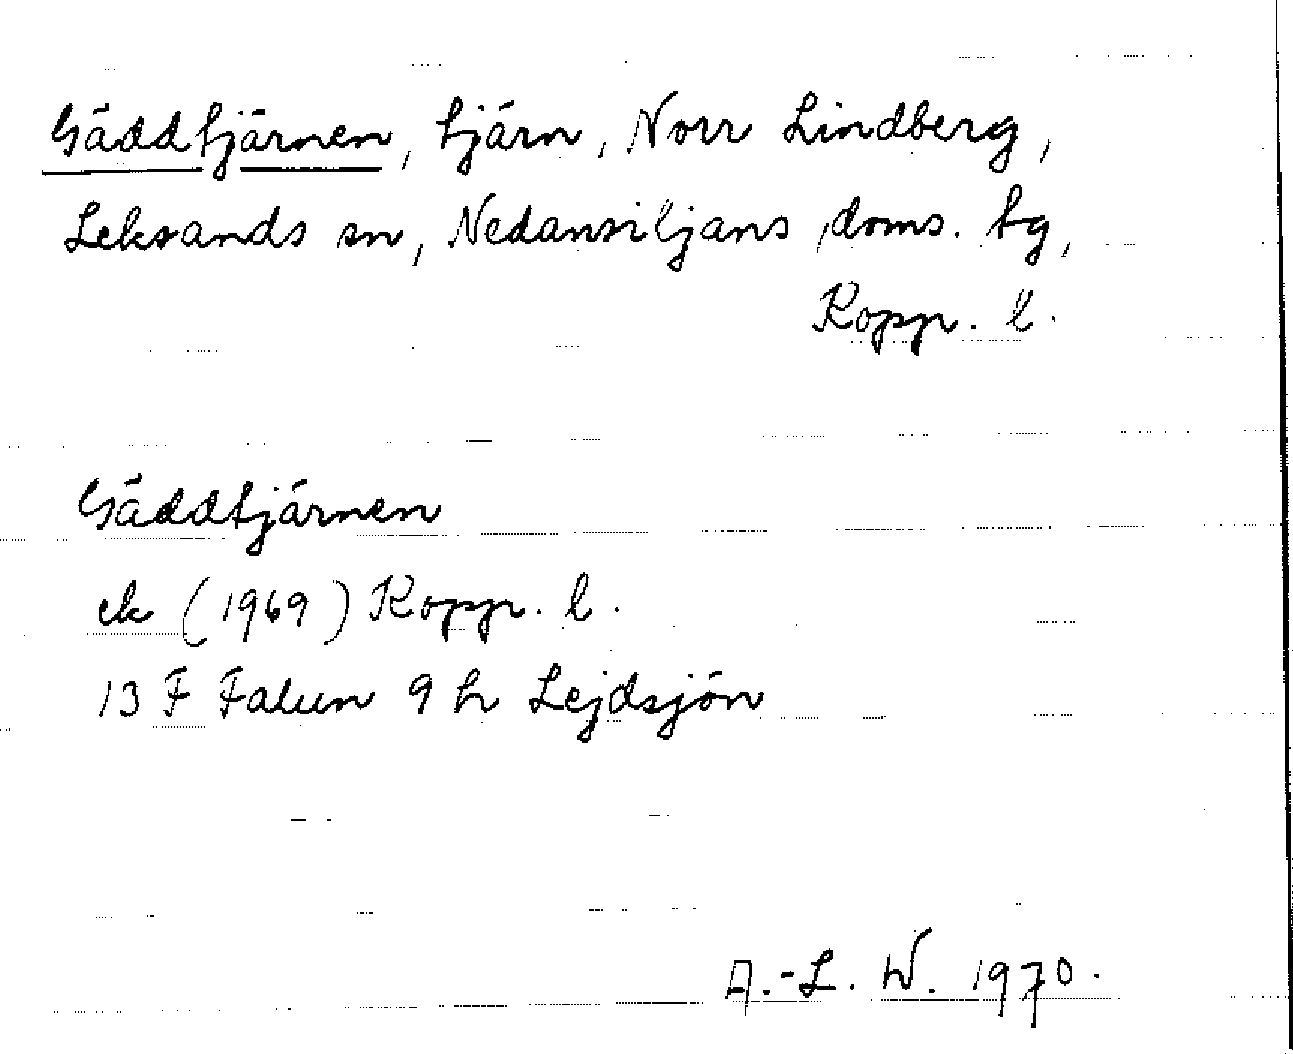 Gäddtjärnen, tjärn, Norr Lindberg,
Leksands sn, Nedansiljans doms. tg,
Kopp. l.
Gäddtjärnen
ek (1969) Kopp. l.
13 F Falun 9 h Lejdsjön
A.-L. W. 1970.